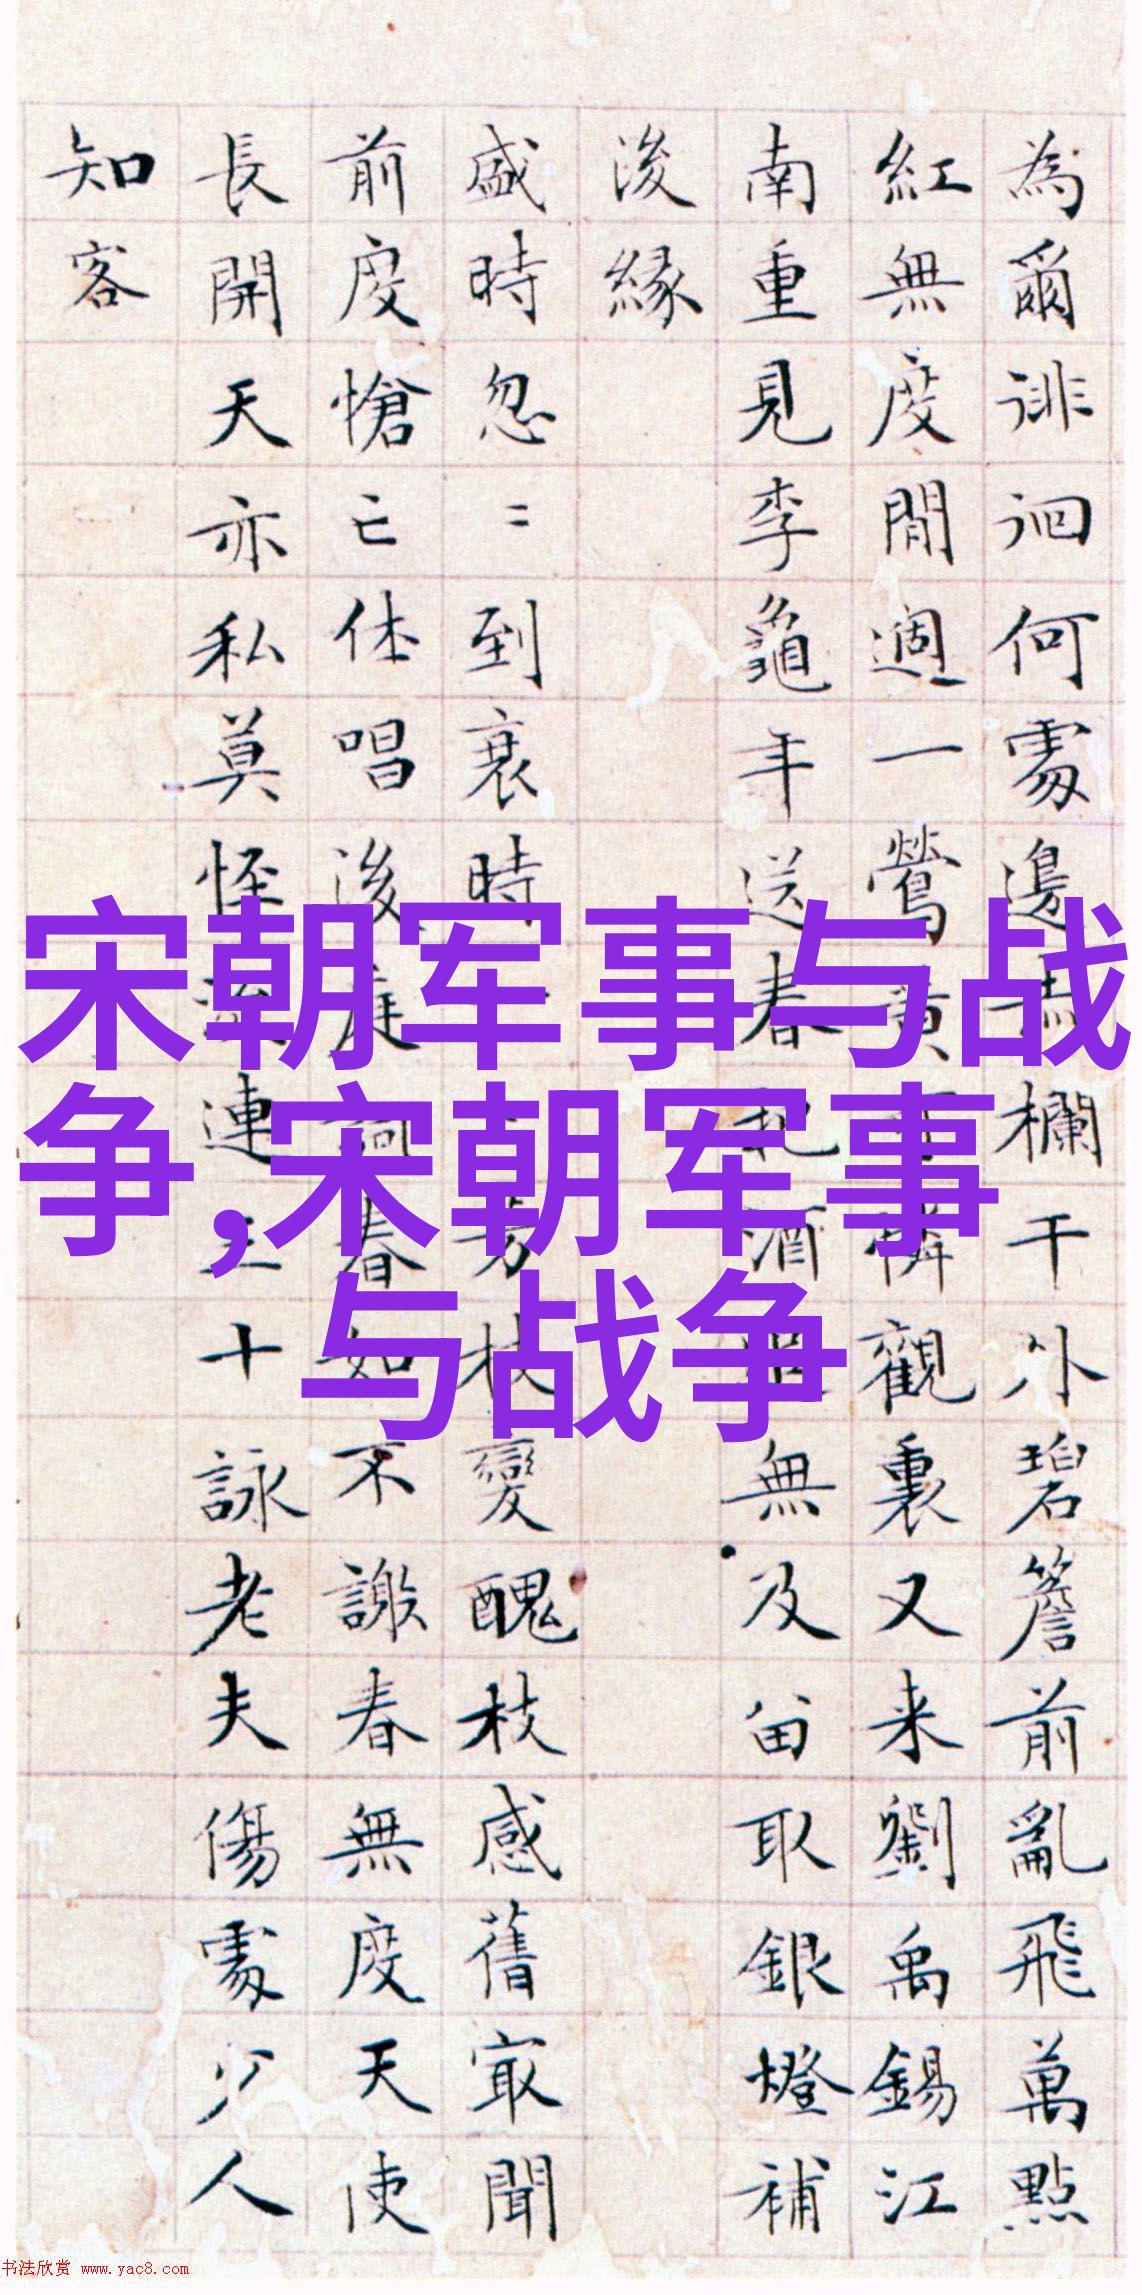 為爾徘徊何處邊 欄干外碧簷前亂飛萬點
紅無度閒週一鶯 觀裏又来劉禹錫江
南重見李龜年送春 酒 無及留取銀燈補
後緣
盛時忽〻到衰時 枝變醜枝感舊寂聞
前度愴亡休唱後庭 春如不謝春無度天使
長開天亦私莫怪 連 十詠老夫傷處少人
知客
宋朝军事与战
争,宋朝军事
与战争
书法欣赏 www.yac8.com